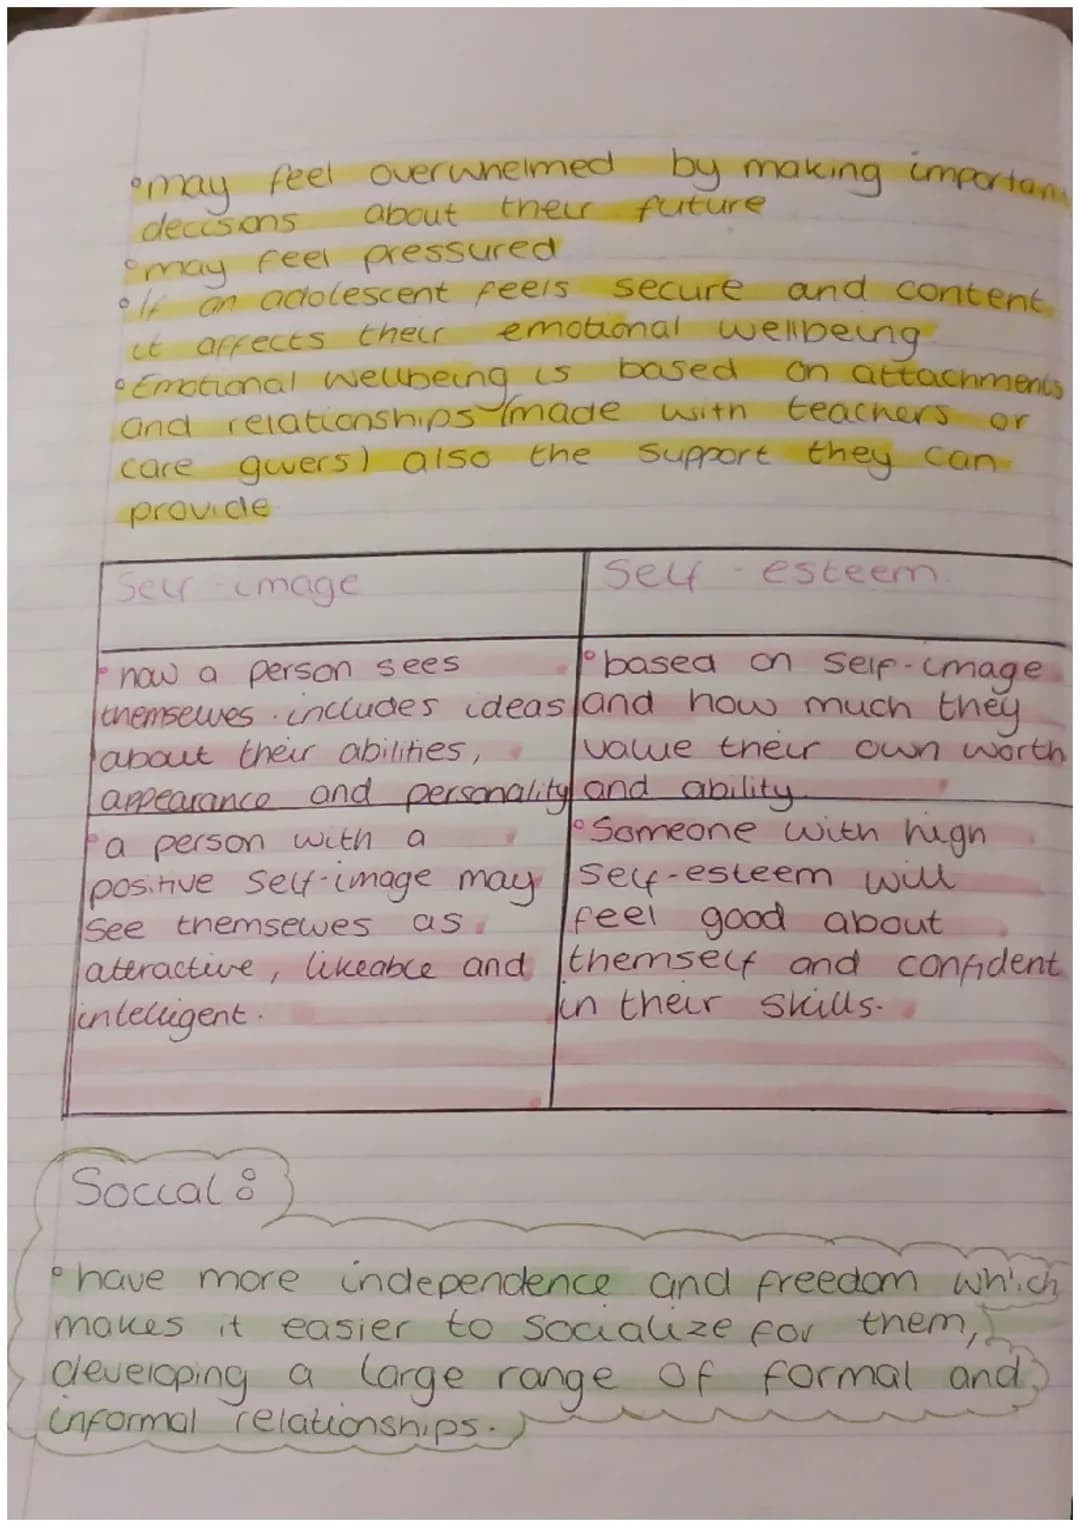 may feel overwhelmed by making important
decisions about their future
may feel pressured
If an adolescent feels secure and content
it affects their emotional wellbeing
Emotional wellbeing is based on attachments
and relationships (made with teachers or
care givers) also the support they can
provide
Self-image
how a person sees
themselves. includes ideas
about their abilities,
appearance and personality
a person with a
positive self-image may
see themselves as
attractive, likeable and
intelligent.
Self-esteem
based on self-image
and how much they
value their own worth
and ability
Someone with high
self-esteem will
feel good about
themself and confident
in their skills.
Social:
have more independence and freedom which
makes it easier to socialize for them,
developing a large range of formal and
informal relationships.